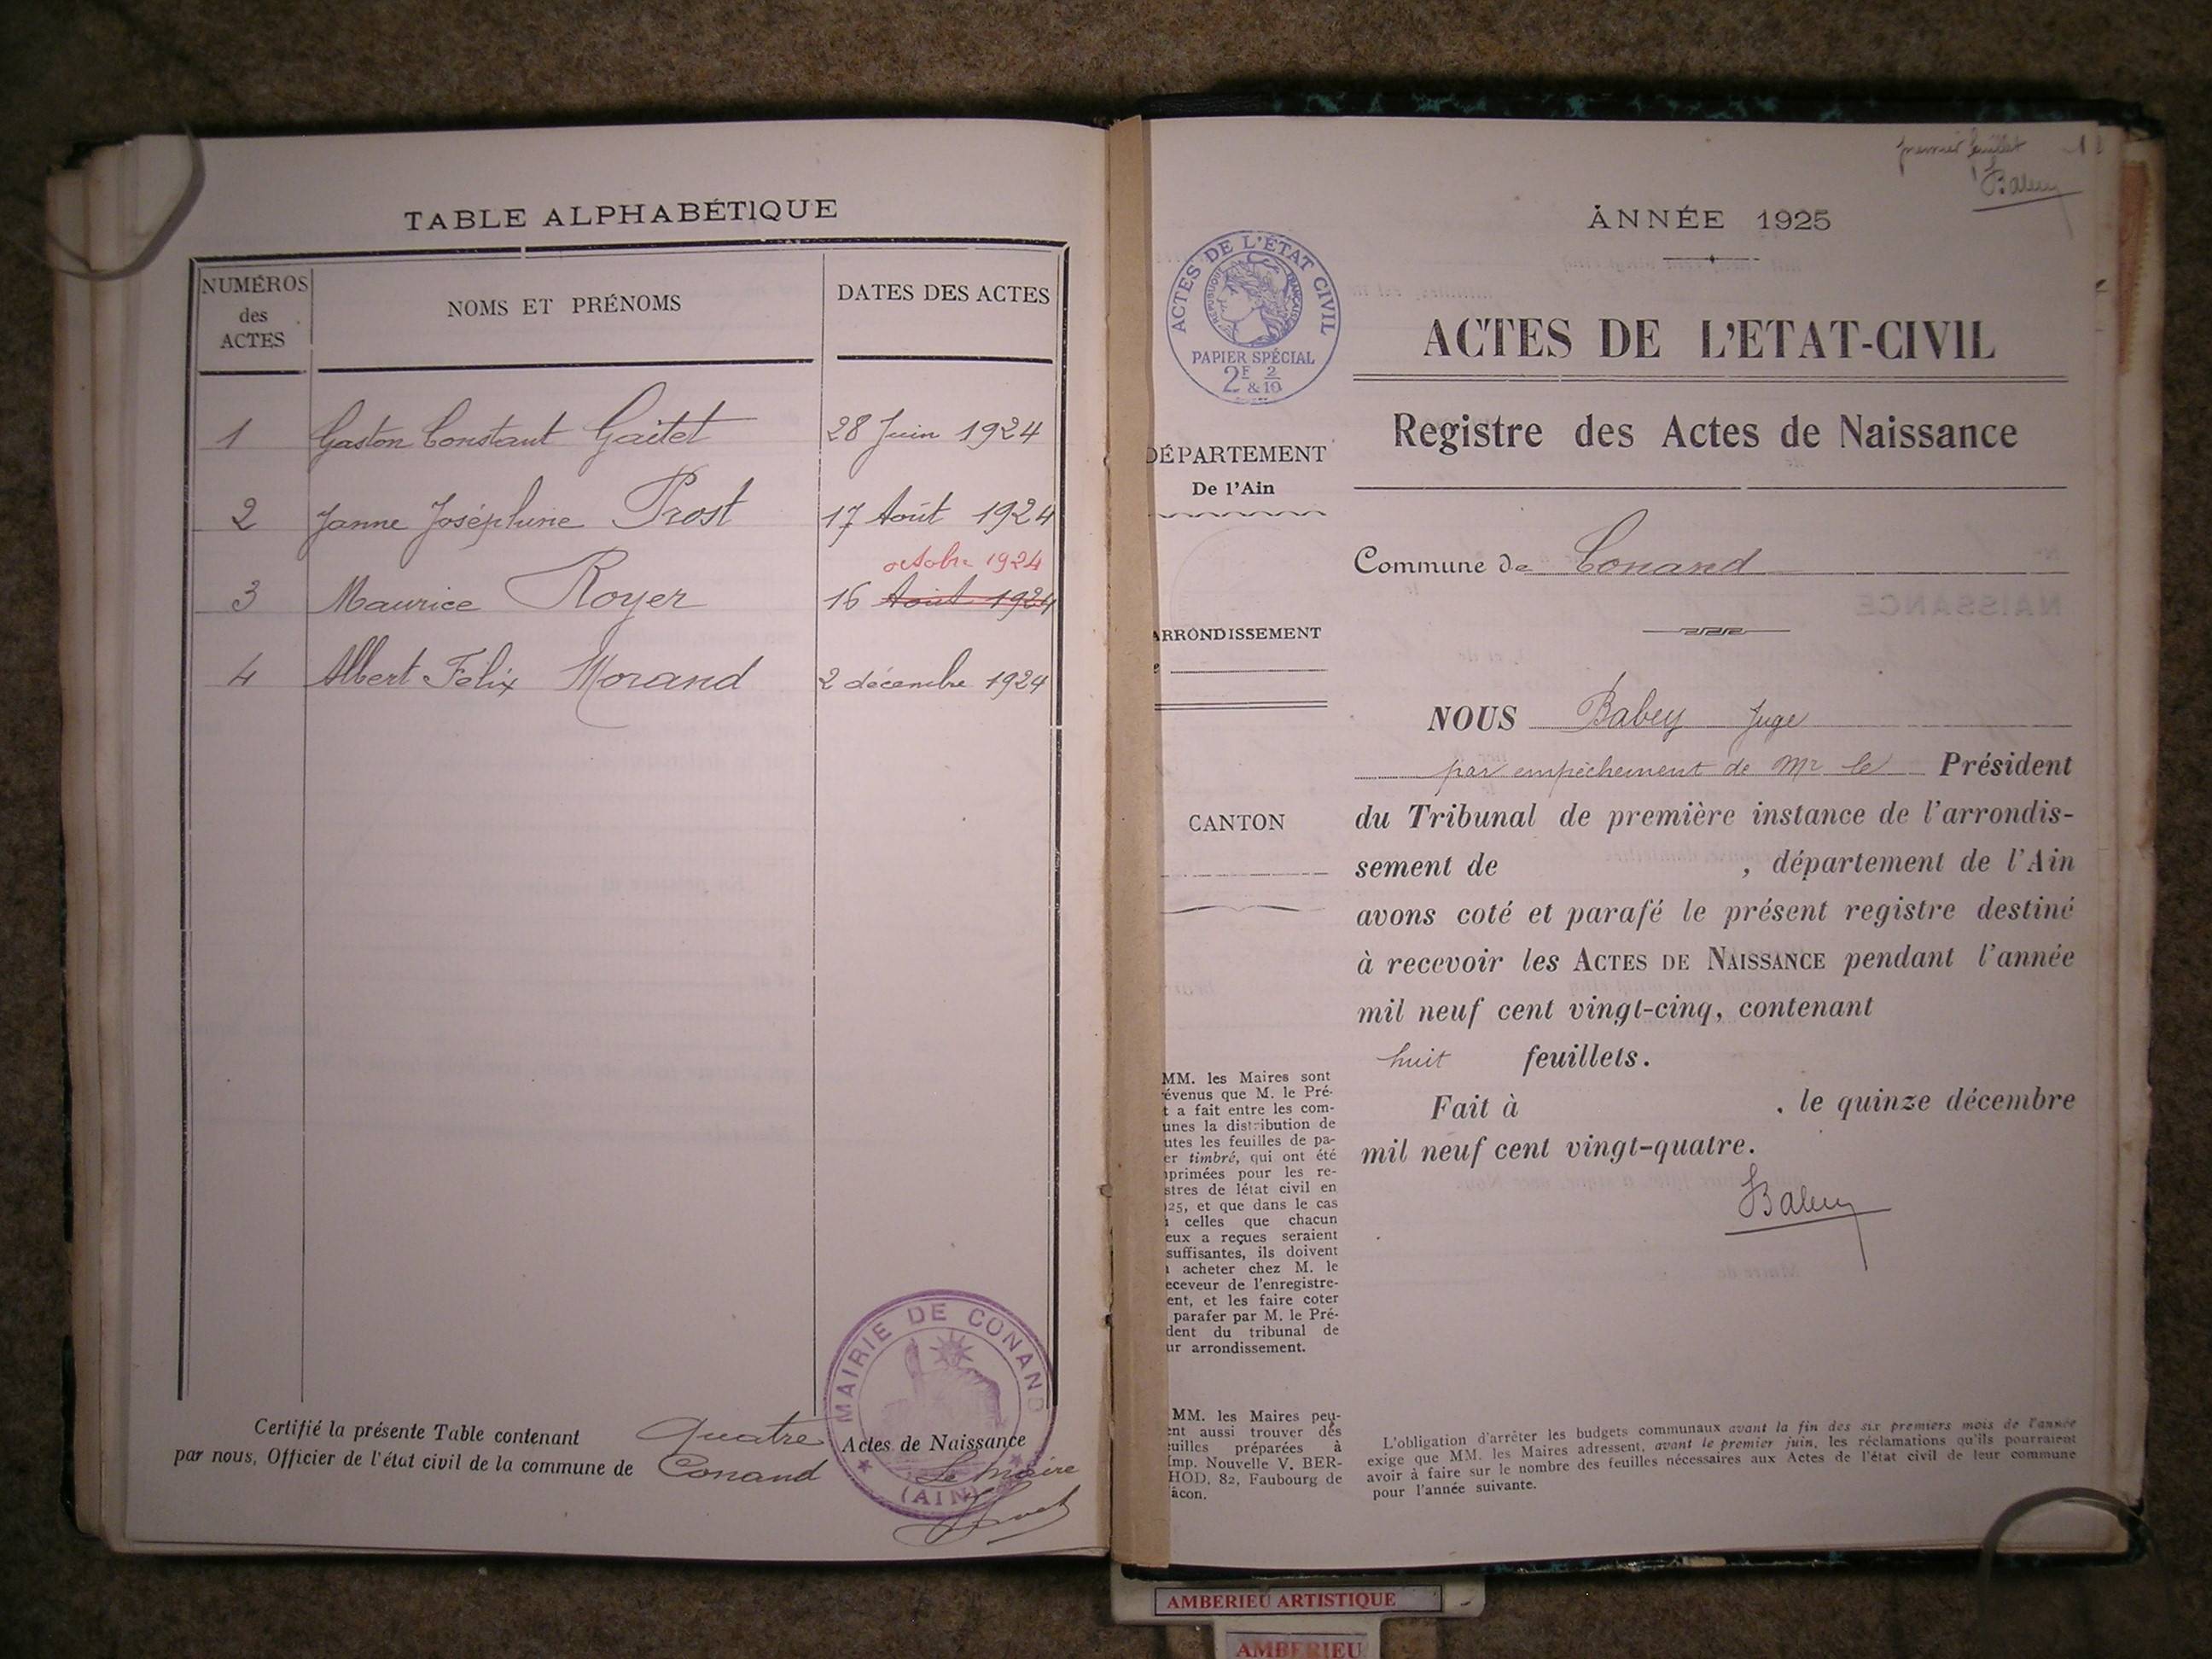 TABLE ALPHABÉTIQUE
NUMÉROS des ACTES
NOMS ET PRÉNOMS
DATES DES ACTES
1 Gaston Constant Gaitet 28 Juin 1924
2 Janne Joséphine Prost 17 Août 1924
octobre 1924
3 Maurice Royer 16 Août 1924
4 Albert Félix Morand 2 décembre 1924
Certifié la présente Table contenant Quatre Actes de Naissance
par nous, Officier de l'état civil de la commune de Conand Le Maire
MAIRIE DE CONAND
(AIN)
premier feuillet 1
Babey
ANNÉE 1925
ACTES DE L'ÉTAT CIVIL
RÉPUBLIQUE FRANÇAISE
PAPIER SPÉCIAL
2F & 2/10
ACTES DE L'ETAT-CIVIL
Registre des Actes de Naissance
DÉPARTEMENT
De l'Ain
Commune de Conand
ARRONDISSEMENT
CANTON
NOUS Babey Juge
par empêchement de Mr le Président
du Tribunal de première instance de l'arrondis-
sement de , département de l'Ain
avons coté et parafé le présent registre destiné
à recevoir les ACTES DE NAISSANCE pendant l'année
mil neuf cent vingt-cinq, contenant
huit feuillets.
Fait à , le quinze décembre
mil neuf cent vingt-quatre.
Babey
MM. les Maires sont
évenus que M. le Pré-
t a fait entre les com-
unes la distribution de
utes les feuilles de pa-
er timbré, qui ont été
primées pour les re-
stres de létat civil en
25, et que dans le cas
celles que chacun
eux a reçues seraient
suffisantes, ils doivent
acheter chez M. le
eceveur de l'enregistre-
ent, et les faire coter
parafer par M. le Pré-
dent du tribunal de
ur arrondissement.
MM. les Maires peu-
ent aussi trouver des
uilles préparées à
Imp. Nouvelle V. BER-
HOD, 82, Faubourg de
âcon.
L'obligation d'arrêter les budgets communaux avant la fin des six premiers mois de l'année
exige que MM. les Maires adressent, avant le premier juin, les réclamations qu'ils pourraient
avoir à faire sur le nombre des feuilles nécessaires aux Actes de l'état civil de leur commune
pour l'année suivante.
AMBERIEU ARTISTIQUE
AMBERIEU